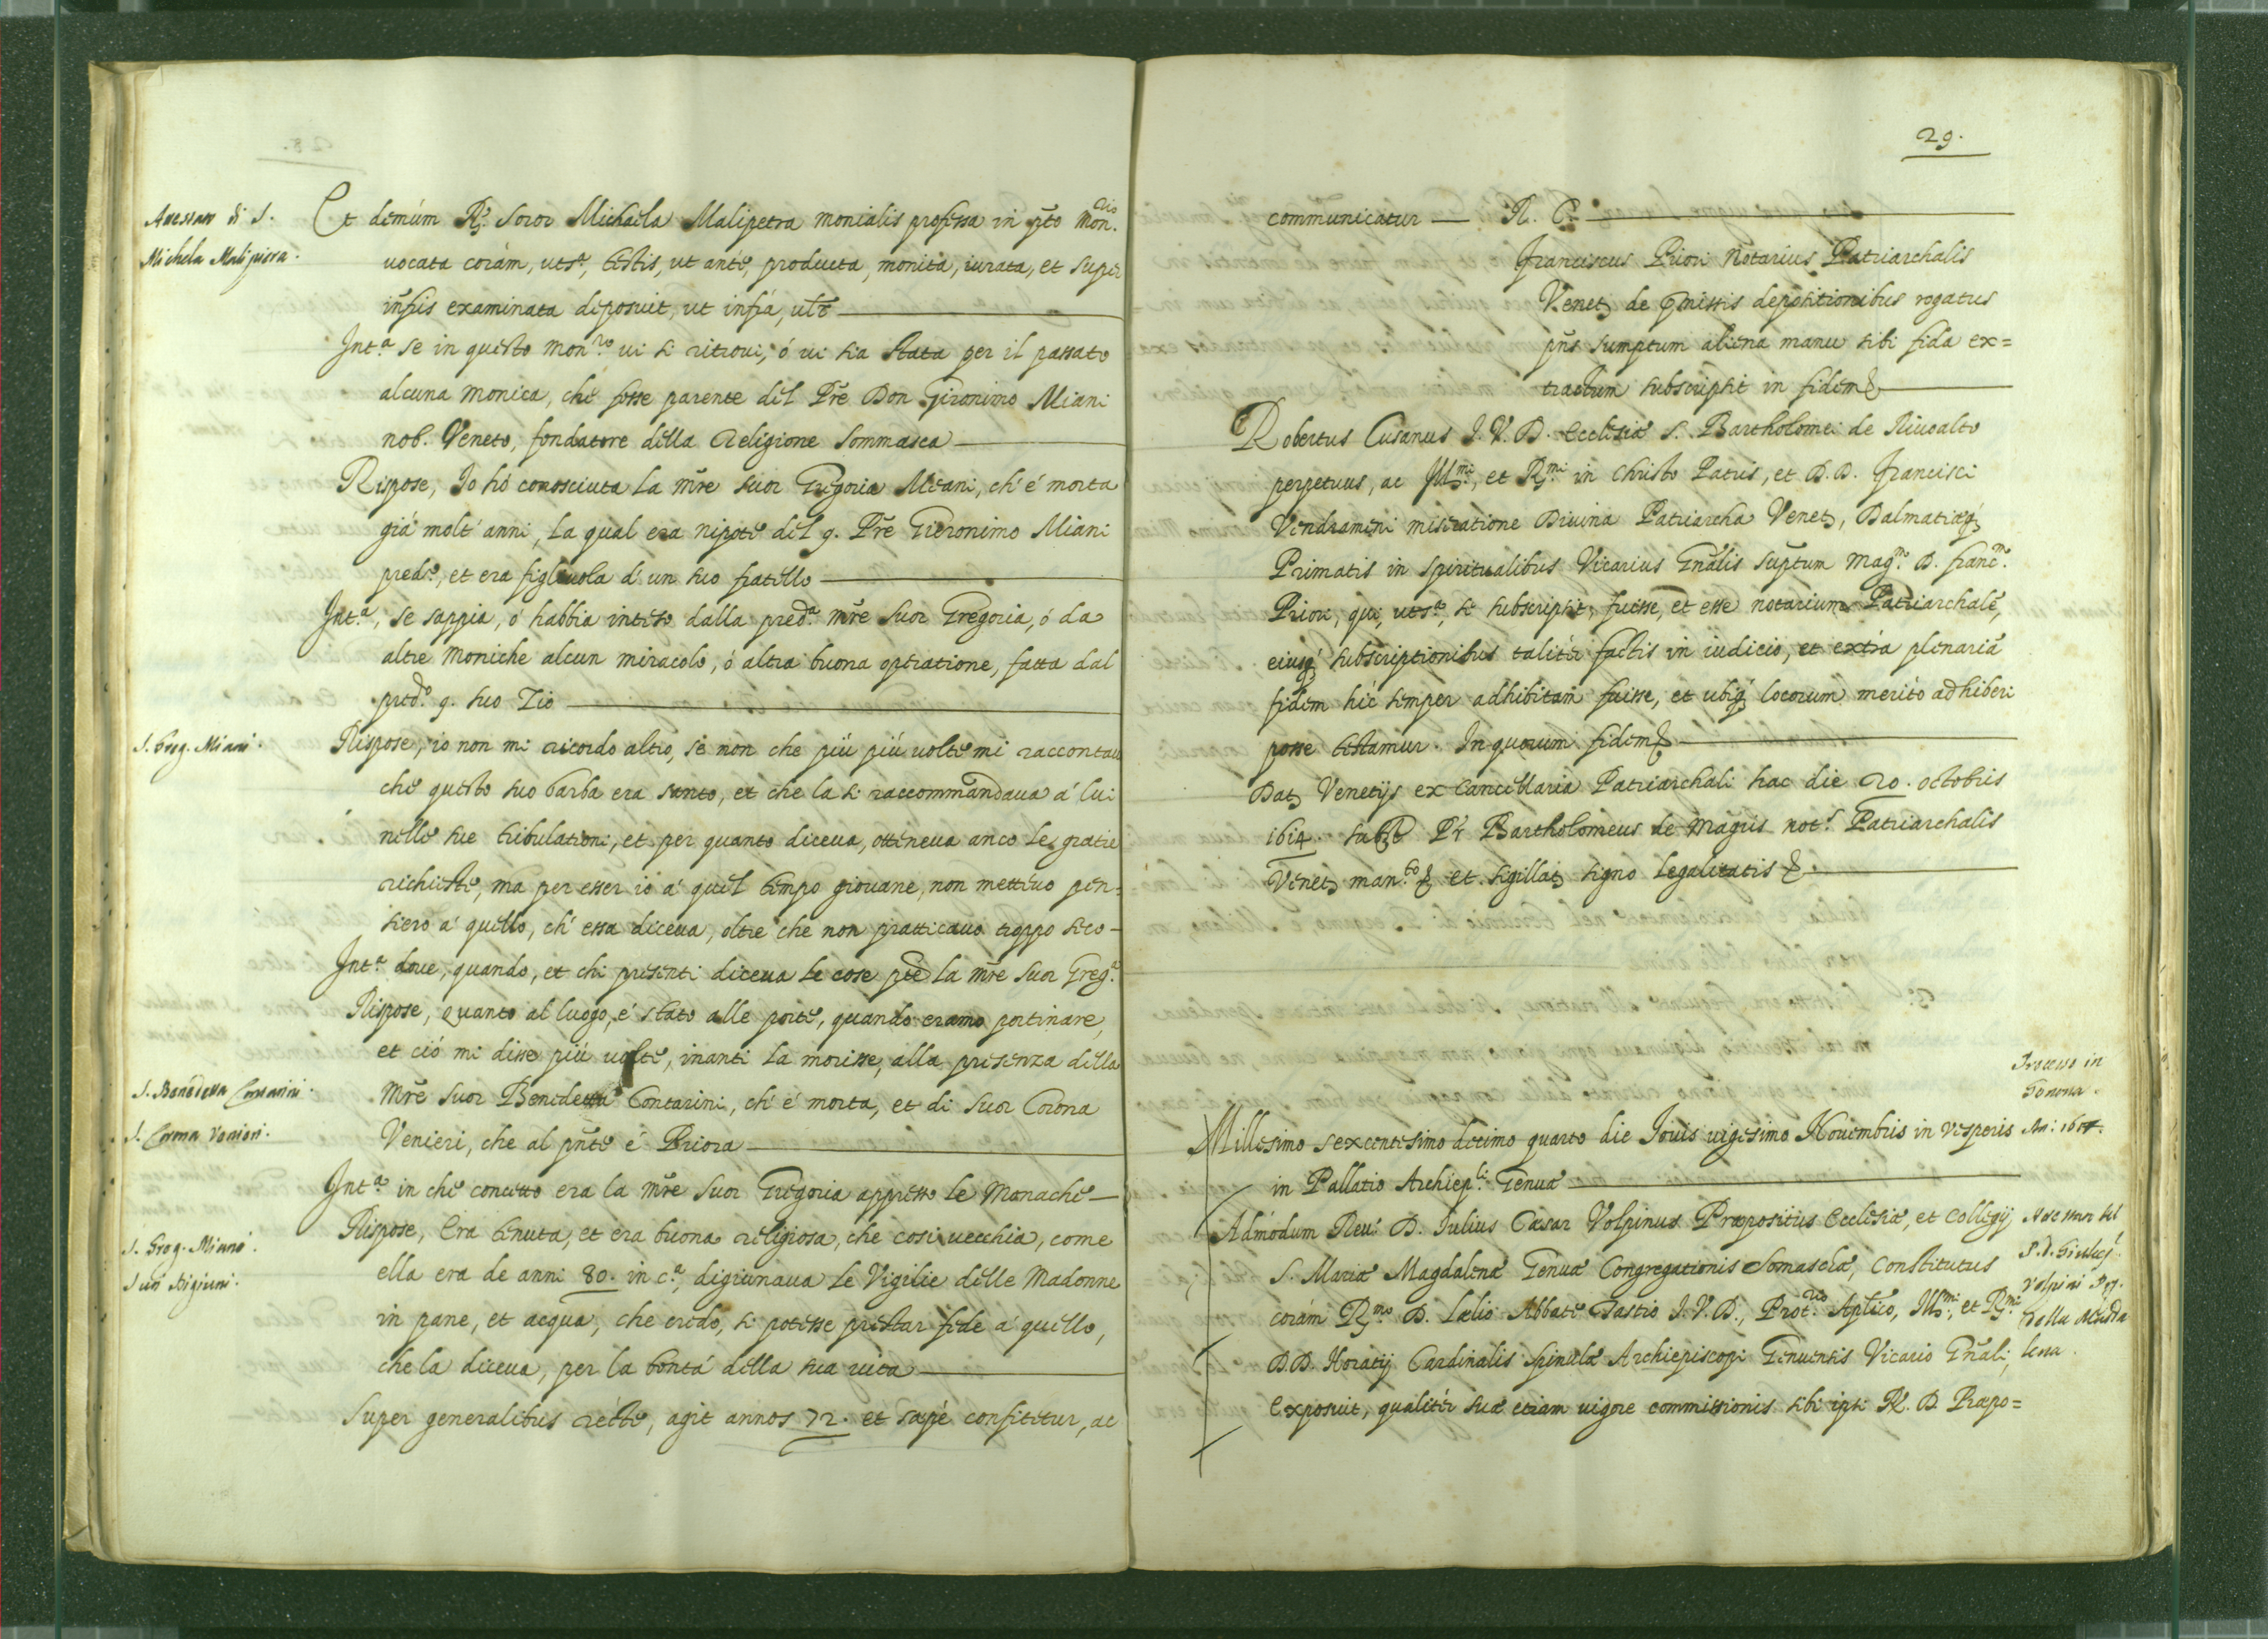 Attestato di S.
Michela Malipiera.
Et demùm R.ª Soror Michaela Malipetra monialis professa in p̃to Mon.rio
uocata coràm, utsª, testis, ut antè, producta, monita, iurata, et super
infr̃is examinata deposuit, ut infrà, ult̃
Int.ª se in questo Mon.ro ui si ritroui, ò ui sia stata per il passato
alcuna Monica, che fosse parente del Pr̃e Don Gironimo Miani
nob. Veneto, fondatore della Religione Sommasca
Rispose, Io hò conosciuta la Mr̃e Suor Gregoria Meani, ch' è morta
già molt' anni, la qual era nipote del q. Pr̃e Gieronimo Miani
pred.º, et era figliuola d' un suo fratello
Int.ª, se sappia, ò habbia inteso dalla pred.ª Mr̃e Suor Gregoria, ò da
altre Moniche alcun miracolo, ò altra buona operatione, fatta dal
pred.º q. suo Zio
S. Greg. Miani.
Rispose, io non mi ricordo altro, se non che più più uolte mi raccontaua
che questo suo barba era santo, et che la si raccommandaua à lui
nelle sue tribulationi, et per quanto diceua, otteneua anco le gratie
richieste, ma per esser io à quel tempo giouane, non metteuo pen=
siero à quello, ch' essa diceua, oltre che non pratticauo troppo seco-
Int.ª doue, quando, et chi presenti diceua le cose pred la Mr̃e Suor Greg.ª
Rispose, Quanto al luogo, è stato alle porte, quando eramo portinare,
et ciò mi disse più uolte, inanti la morisse, alla presenza della
S. Benedetta Contarini.
Mr̃e Suor Benedetta Contarini, ch' è morta, et di Suor Corona
S. Corona Venieri.
Venieri, che al pñte è Priora
Int.ª in che concetto era la Mr̃e Suor Gregoria appresso le Monache
S. Greg. Miani.
Suoi Digiuni.
Rispose, Era tenuta, et era buona religiosa, che così uecchia, come
ella era de anni 80. in c.ª, digiunaua le Vigilie delle Madonne
in pane, et acqua, che credo, si potesse prestar fede à quello,
che la diceua, per la bontà della sua uita
Super generalibus rectè, agit annos 72. et sæpè confitetur, ac
29.
communicatur — R. C.
Franciscus Priori Notarius Patriarchalis
Venet de p̃missis depositionibus rogatus
pñs sumptum aliena manu sibi fida ex=
tractum subscripsit in fidem
Robertus Cusanus I. V. D. Ecclesiæ S. Bartholomei de Riuoalto
perpetuus, ac Ill.mi, et R.mi in Christo Patris, et D. D. Francisci
Vendrameni miseratione Diuina Patriarcha Venet, Dalmatiæq;
Primatis in spiritualibus Vicarius Gñalis suptum Mag.m D. Franc.m
Priori, qui, utsª, se subscripsit, fuisse, et esse notarium Patriarchalẽ,
eiusq; subscriptionibus talitèr factis in iudicio, et extrà plenariã
fidem hìc semper adhibitam fuisse, et ubiq; locorum meritò adhiberi
posse testamur. In quorum fidem
Dat Venetijs ex Cancellaria Patriarchali hac die 20. octobris
1614. subst Pr̃ Bartholomeus de Magris not.s Patriarchalis
Venet man.to et sigillat signo Legalitatis
Processo in
Genoua.
An: 1614.
Millesimo sexcentesimo decimo quarto die Iouis uigesimo Nouembris in Vesperis
in Pallatio Archiep.li Genuæ
Attestato del
P. D. Giulio C.
Volpini Pp.
della Madda
lena.
Admodum Reu. D. Iulius Cæsar Volpinus Præpositus Ecclesiæ, et Collegij
S. Mariæ Magdalenæ Genuæ Congregationis Somaschæ, Constitutus
coràm R.mo D. Lælio Abbate Tastio I. V. D., Prot.rio Apl̃ico, Ill.mi, et R.mi
D. D. Horatij Cardinalis Spinulæ Archiepiscopi Genuensis Vicario Gñali,
Exposuit, qualitèr sua etiam uigore commissionis sibi ipsi R. D. Præpo=